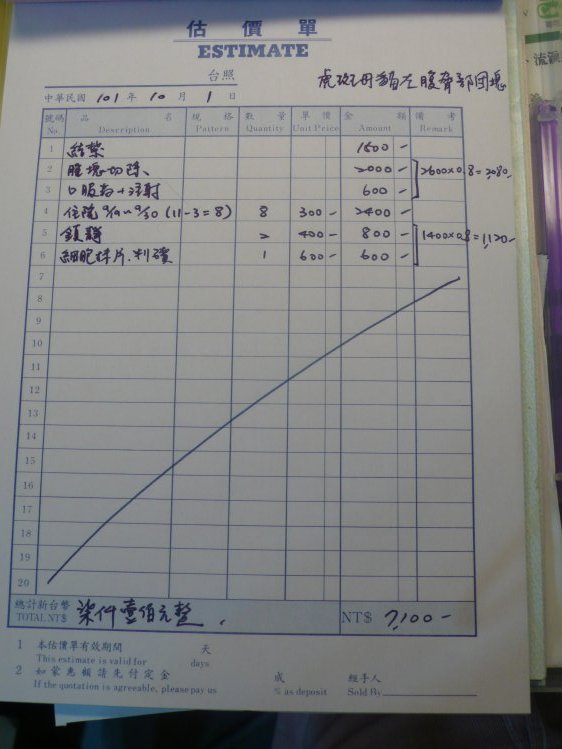 估價單
ESTIMATE
台照
虎斑母貓左腹脅部團塊
中華民國 101 年 10 月 1 日
號碼 品名 規格 數量 單價 金額 備考
No. Description Pattern Quantity Unit Price Amount Remark
1 結紮 1500-
2 腫塊切除 2000- 2600x0.8=2080-
3 口服药+注射 600-
4 住院 9/19~9/30 (11-3=8) 8 300- 2400-
5 鎮靜 2 400- 800- 1400x0.8=1,120-
6 細胞抹片.判讀 1 600- 600-
7
8
9
10
11
12
13
14
15
16
17
18
19
20
總計新台幣 柒仟壹佰元整.
TOTAL NT$ NT$ 7,100-
1 本估價單有效期間 天
This estimate is valid for days
2 如蒙惠顧請先付定金 成 經手人
If the quotation is agreeable, please pay us % as deposit Sold By